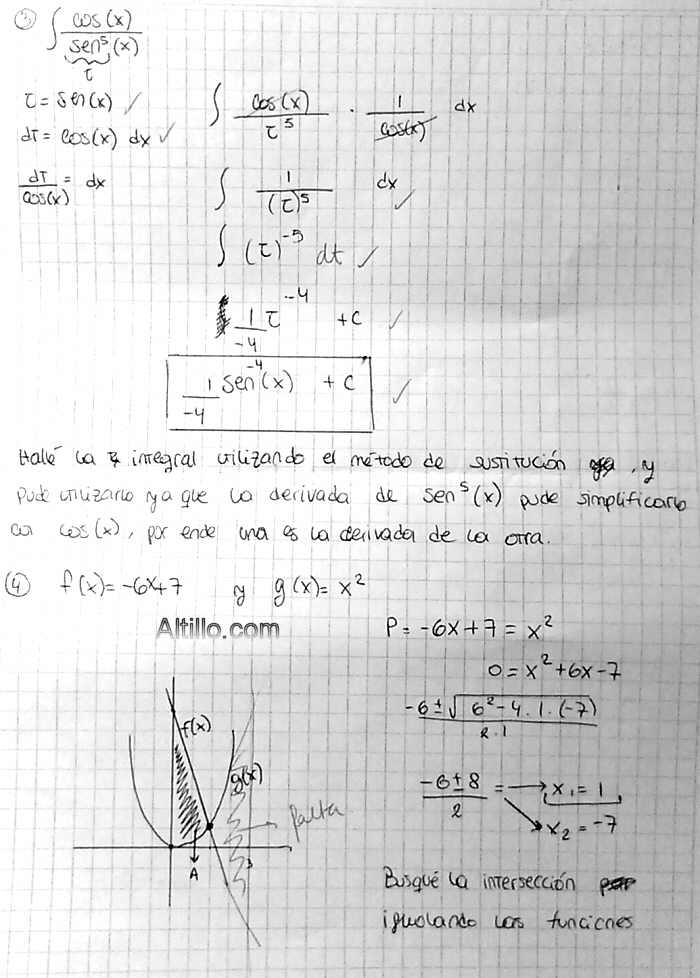 ③ ∫ cos(x) / sen⁵(x)
τ
τ = sen(x) ✓
dτ = cos(x) dx ✓
dτ / cos(x) = dx
∫ cos(x) / τ⁵ · 1 / cos(x) dx
∫ 1 / (τ)⁵ dx ✓
∫ (τ)⁻⁵ dt ✓
1 / -4 τ⁻⁴ + c ✓
1 / -4 sen⁻⁴(x) + c ✓
Hallé la integral utilizando el método de sustitución , y
pude utilizarlo ya que la derivada de sen⁵(x) pude simplificarlo
con cos(x), por ende una es la derivada de la otra.
④ f(x)= -6x+7 y g(x)= x²
Altillo.com
P = -6x+7 = x²
0 = x²+6x-7
-6 ± √6²-4.1.(-7) / 2.1
-6 ± 8 / 2 = → x₁ = 1
x₂ = -7
f(x)
g(x)
falta
A
Busqué la intersección
igualando las funciones